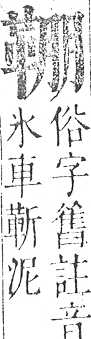 䩬俗字舊註音
氷車靳泥